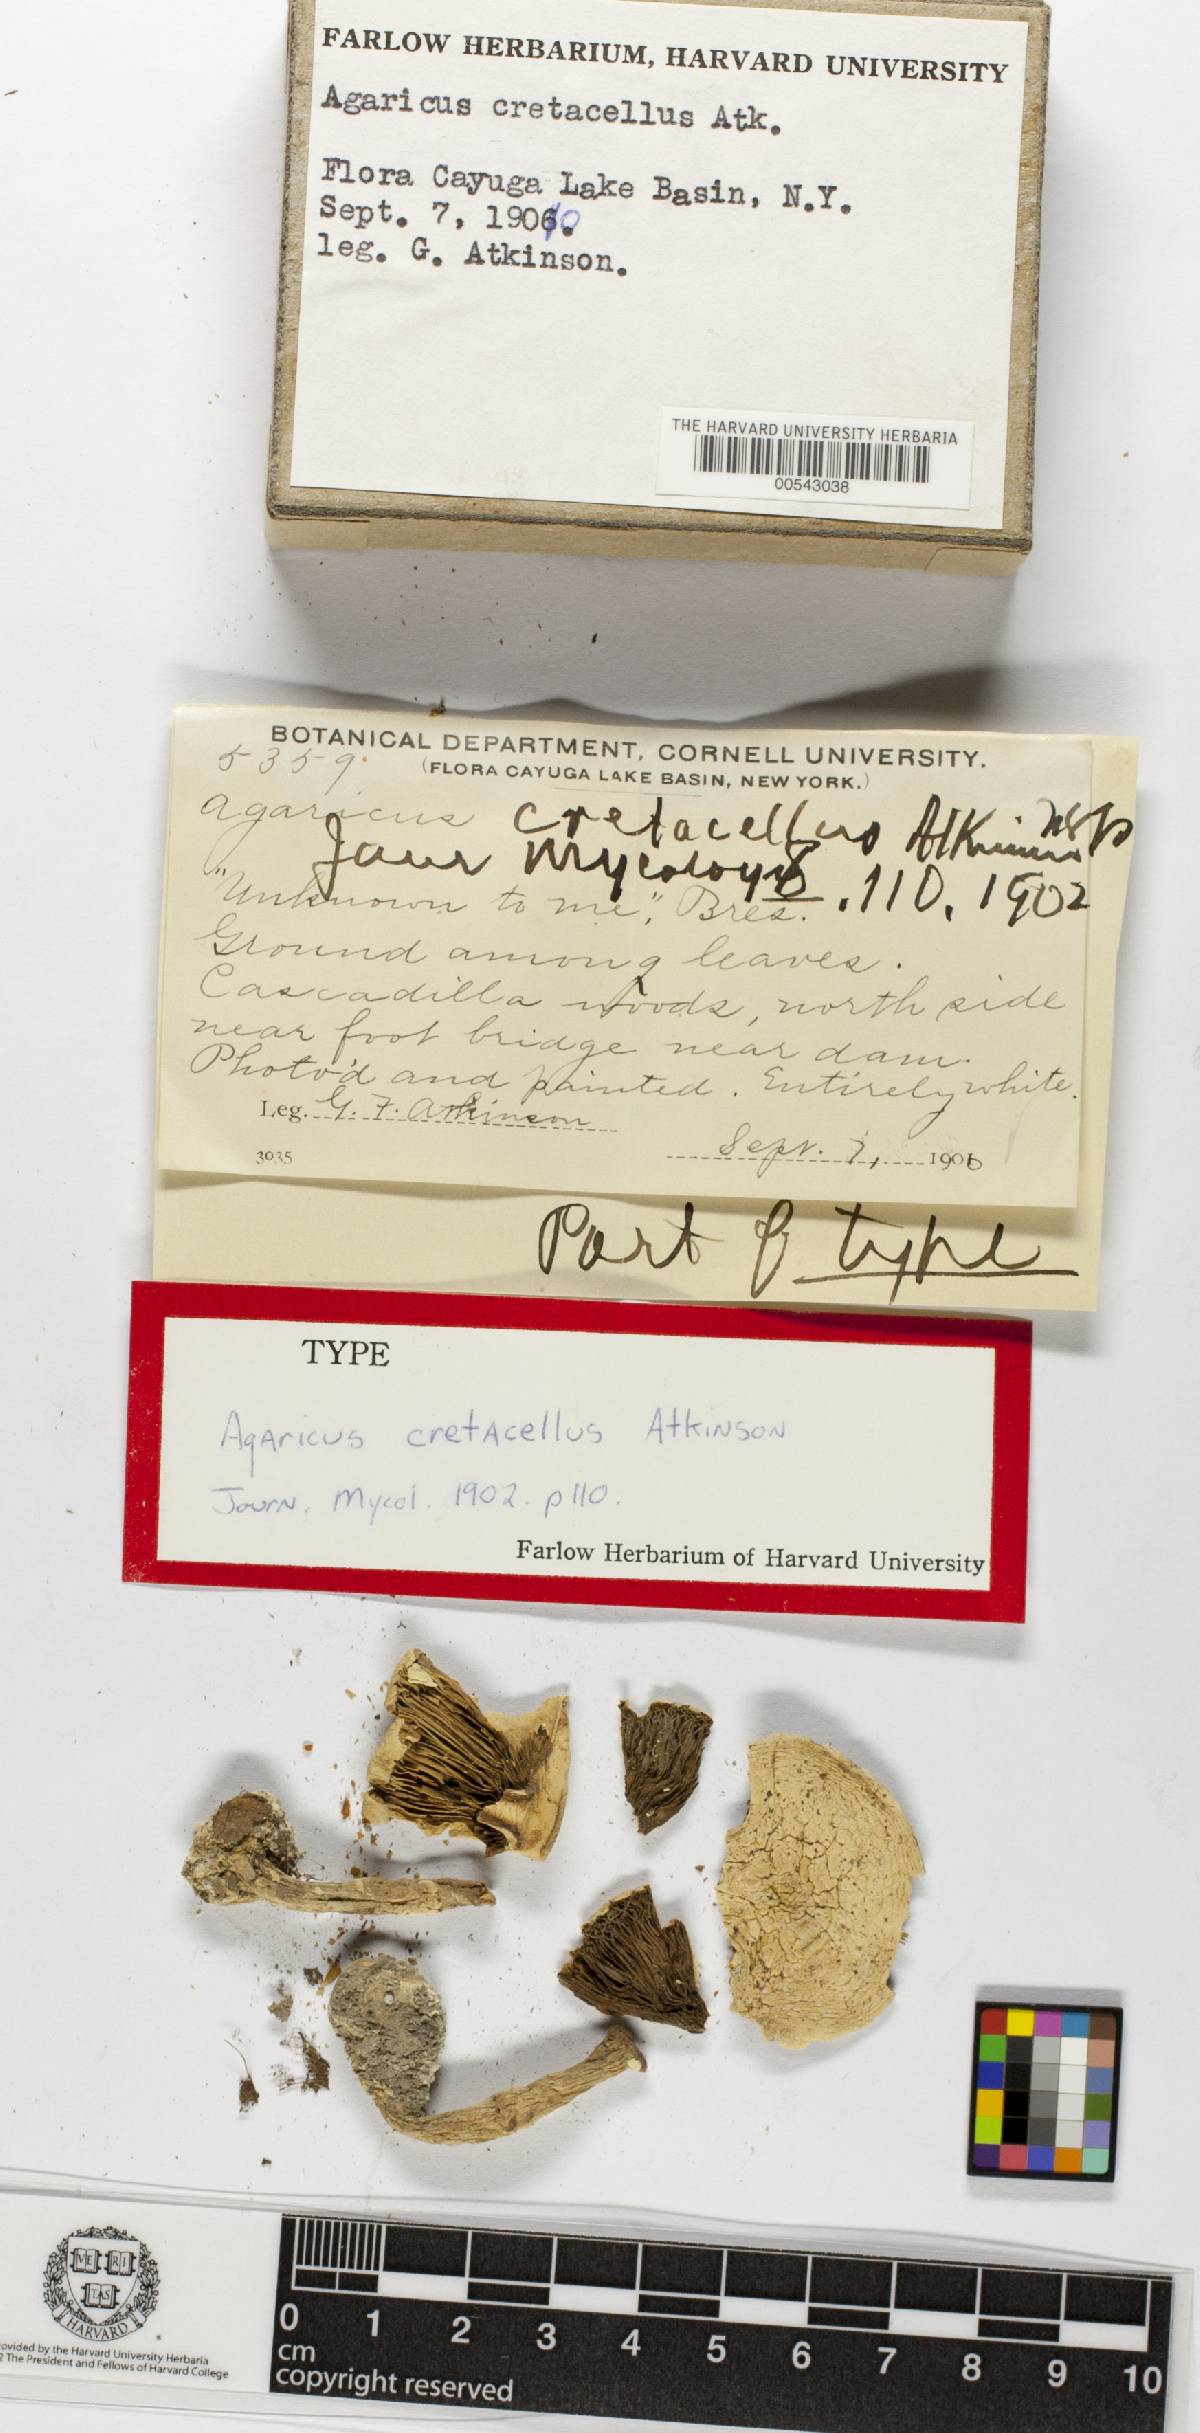 FARLOW HERBARIUM, HARVARD UNIVERSITY
Agaricus cretacellus Atk.
Flora Cayuga Lake Basin, N.Y.
Sept. 7, 1900.
leg. G. Atkinson.
THE HARVARD UNIVERSITY HERBARIA
00543038
BOTANICAL DEPARTMENT, CORNELL UNIVERSITY.
5359.
(FLORA CAYUGA LAKE BASIN, NEW YORK.)
Agaricus cretacellus Atkinson n sp
Jour Mycology 8.110. 1902
"Unknown to me", Bres.
Ground among leaves.
Cascadilla woods, north side
near foot bridge near dam.
Photo'd and painted. Entirely white.
Leg. G. F. Atkinson
Sept. 7, 1900
3035
Part of type
TYPE
Agaricus cretacellus Atkinson
Journ. Mycol. 1902. p110.
Farlow Herbarium of Harvard University
VE RI TAS
HARVARD
0 1 2 3 4 5 6 7 8 9 10
cm
copyright reserved
rovided by the Harvard University Herbaria
2 The President and Fellows of Harvard College